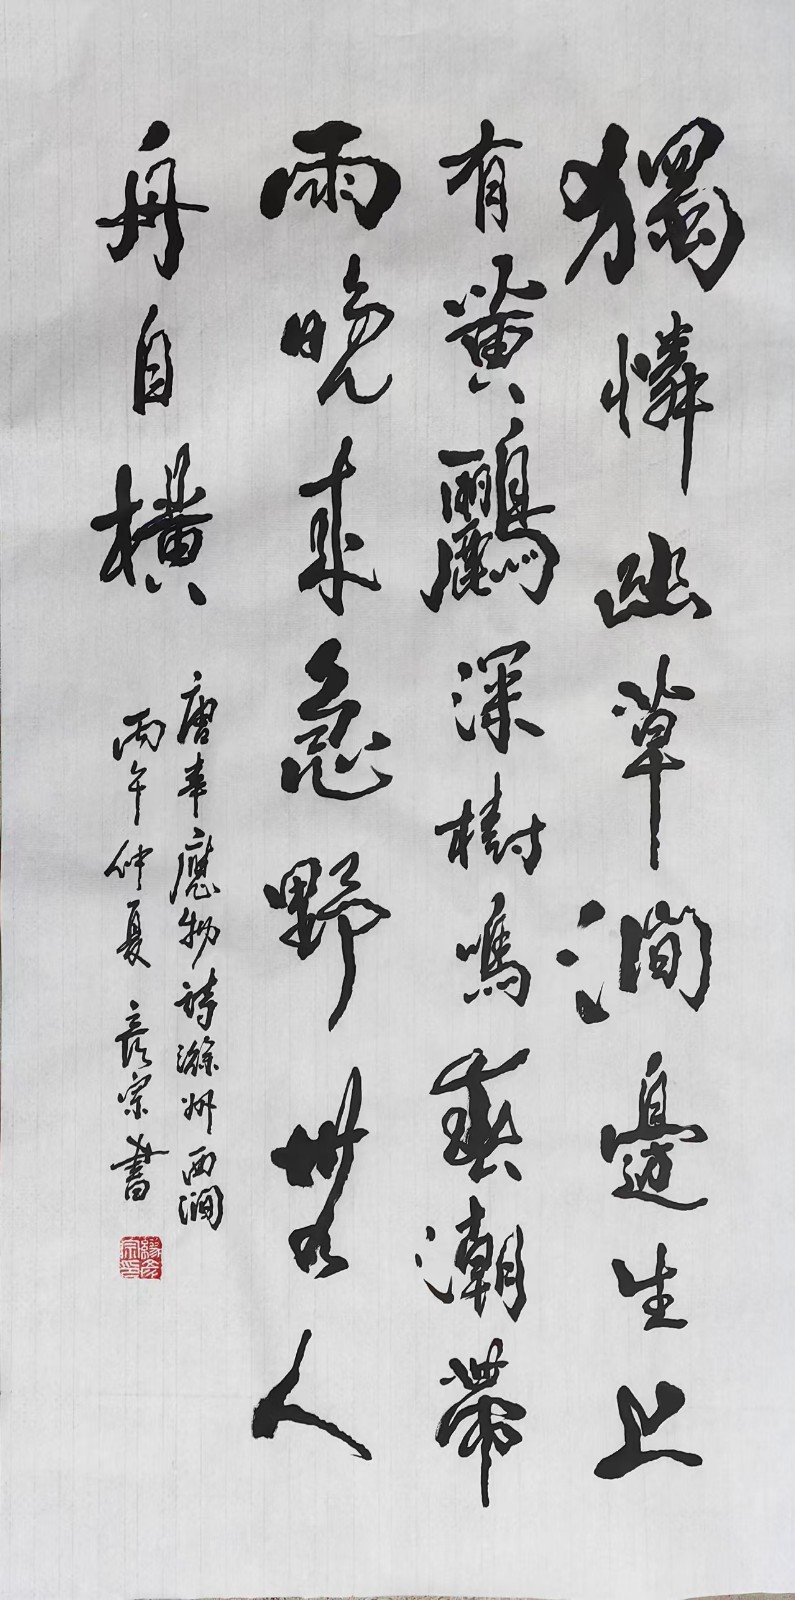 獨憐幽草澗邊生上
有黃鸝深樹鳴春潮帶
雨晚來急野無人
舟自橫
唐韋應物詩滁州西澗
丙午仲夏 彥宗書